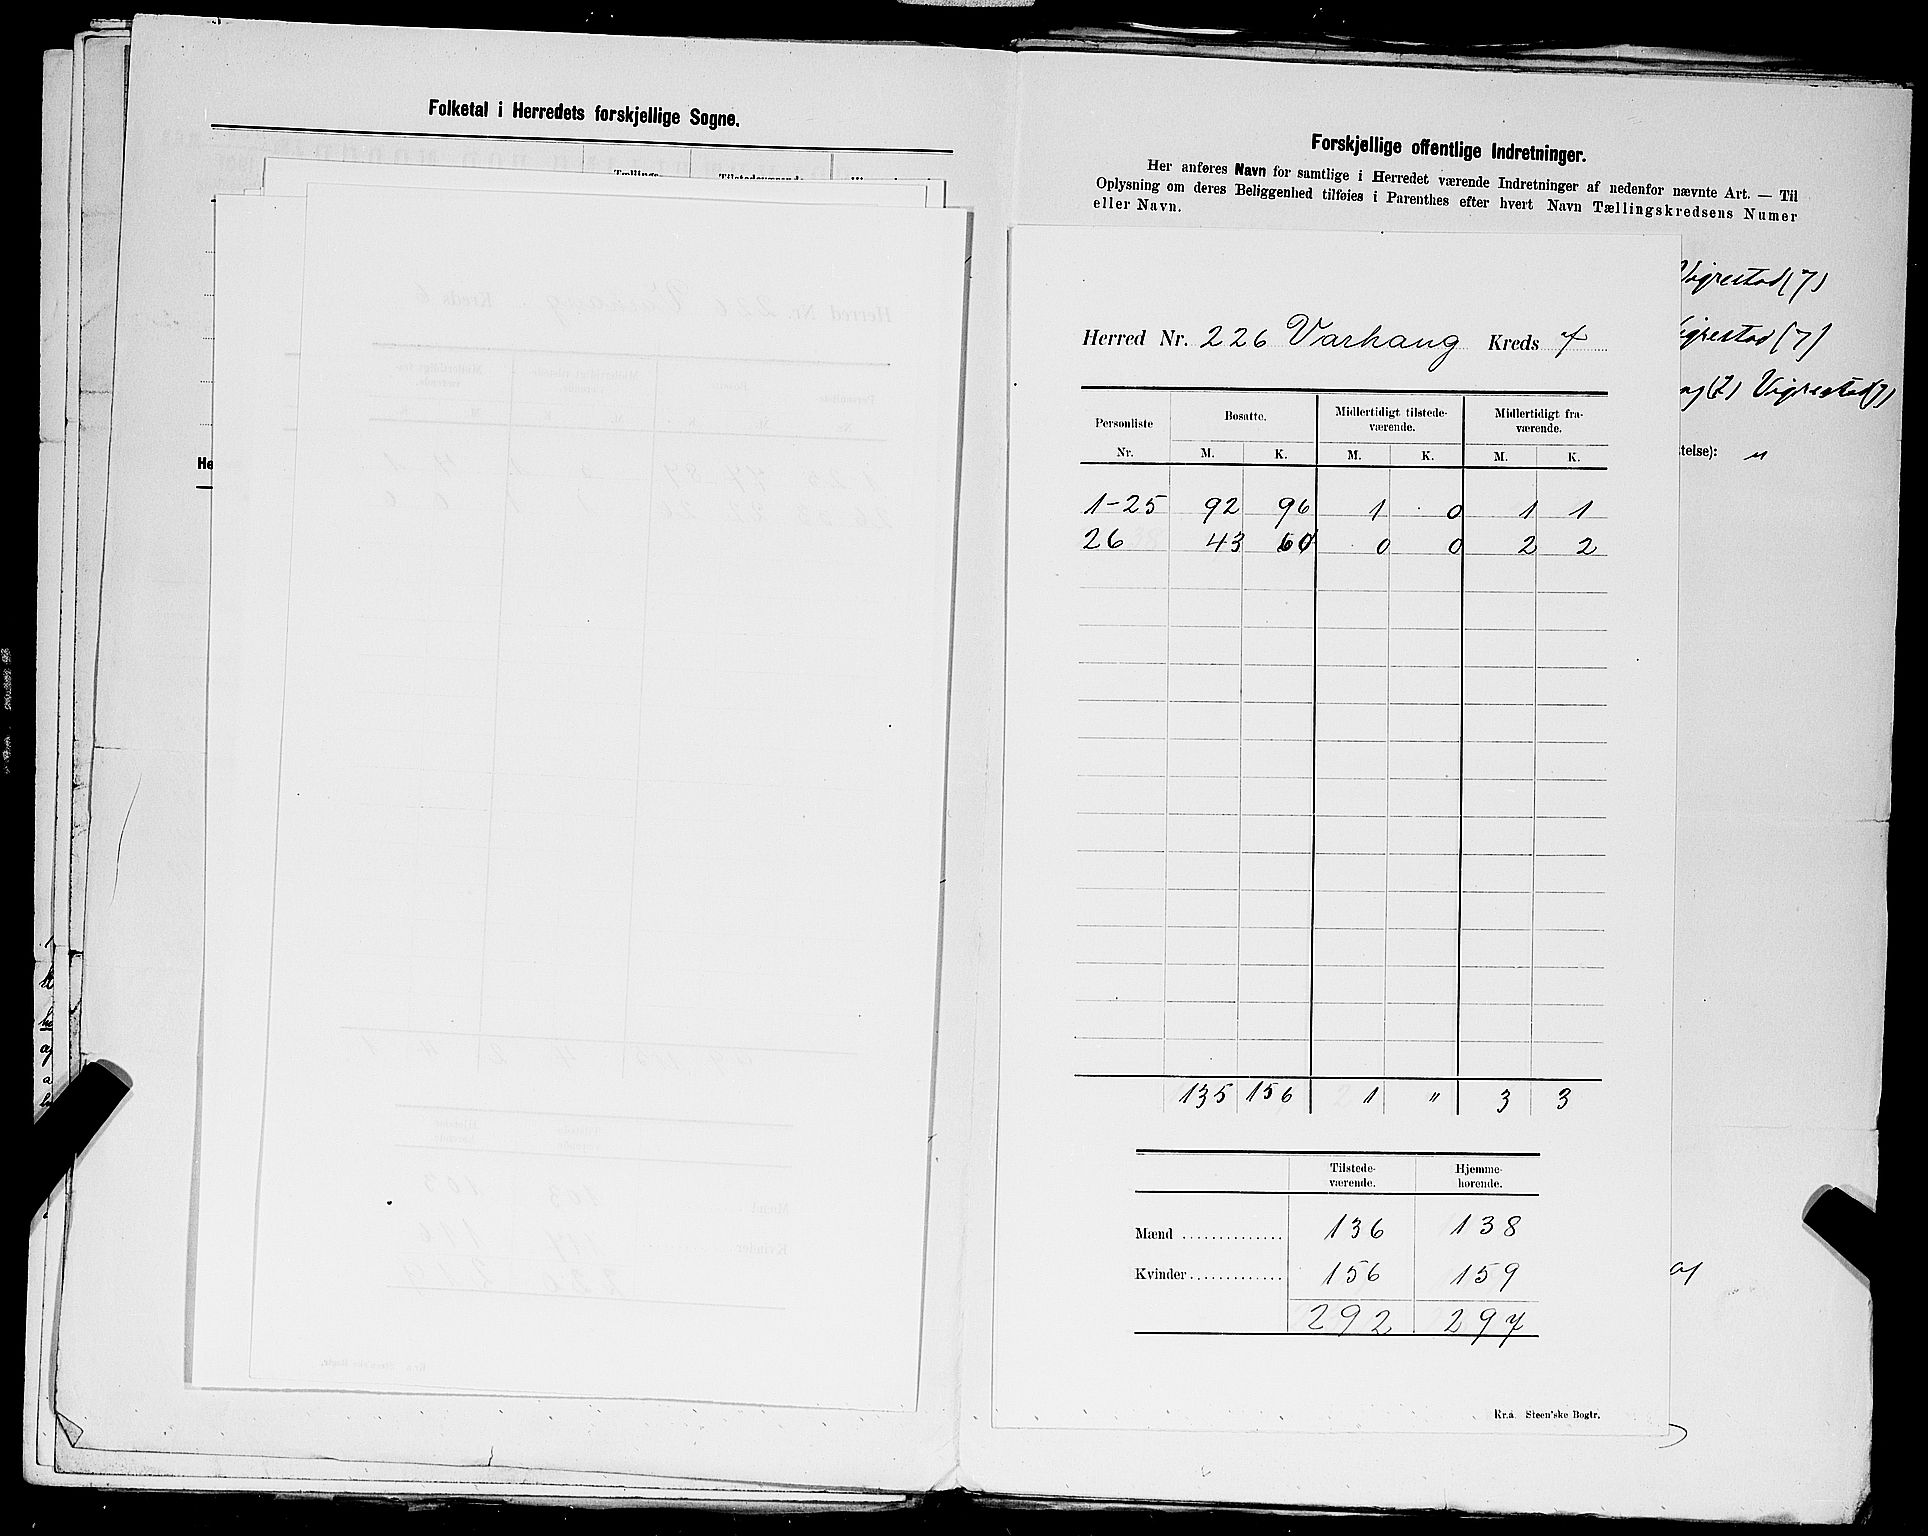 Folketal i Herredets forskjellige Sogne.
Tællings-
Tilstedeværende
He
Forskjellige offentlige Indretninger.
Her anføres Navn for samtlige i Herredet værende Indretninger af nedenfor nævnte Art. — Til
Oplysning om deres Beliggenhed tilføies i Parenthes efter hvert Navn Tællingskredsens Numer
eller Navn.
Vigrestad (7)
Vigrestad (7)
Vigrestad (7)
telse): "
Herred Nr. 226 Varhaug Kreds 7
Personliste Bosatte. Midlertidigt tilstede- Midlertidigt fra-
værende. værende.
Nr. M. K. M. K. M. K.
1-25 92 96 1 0 1 1
26 43 60 0 0 2 2
135 156 1 " 3 3
Tilstede- Hjemme-
værende. hørende.
Mænd .............. 136 138
Kvinder ............. 156 159
292 297
Kr.a. Steen'ske Bogtr.